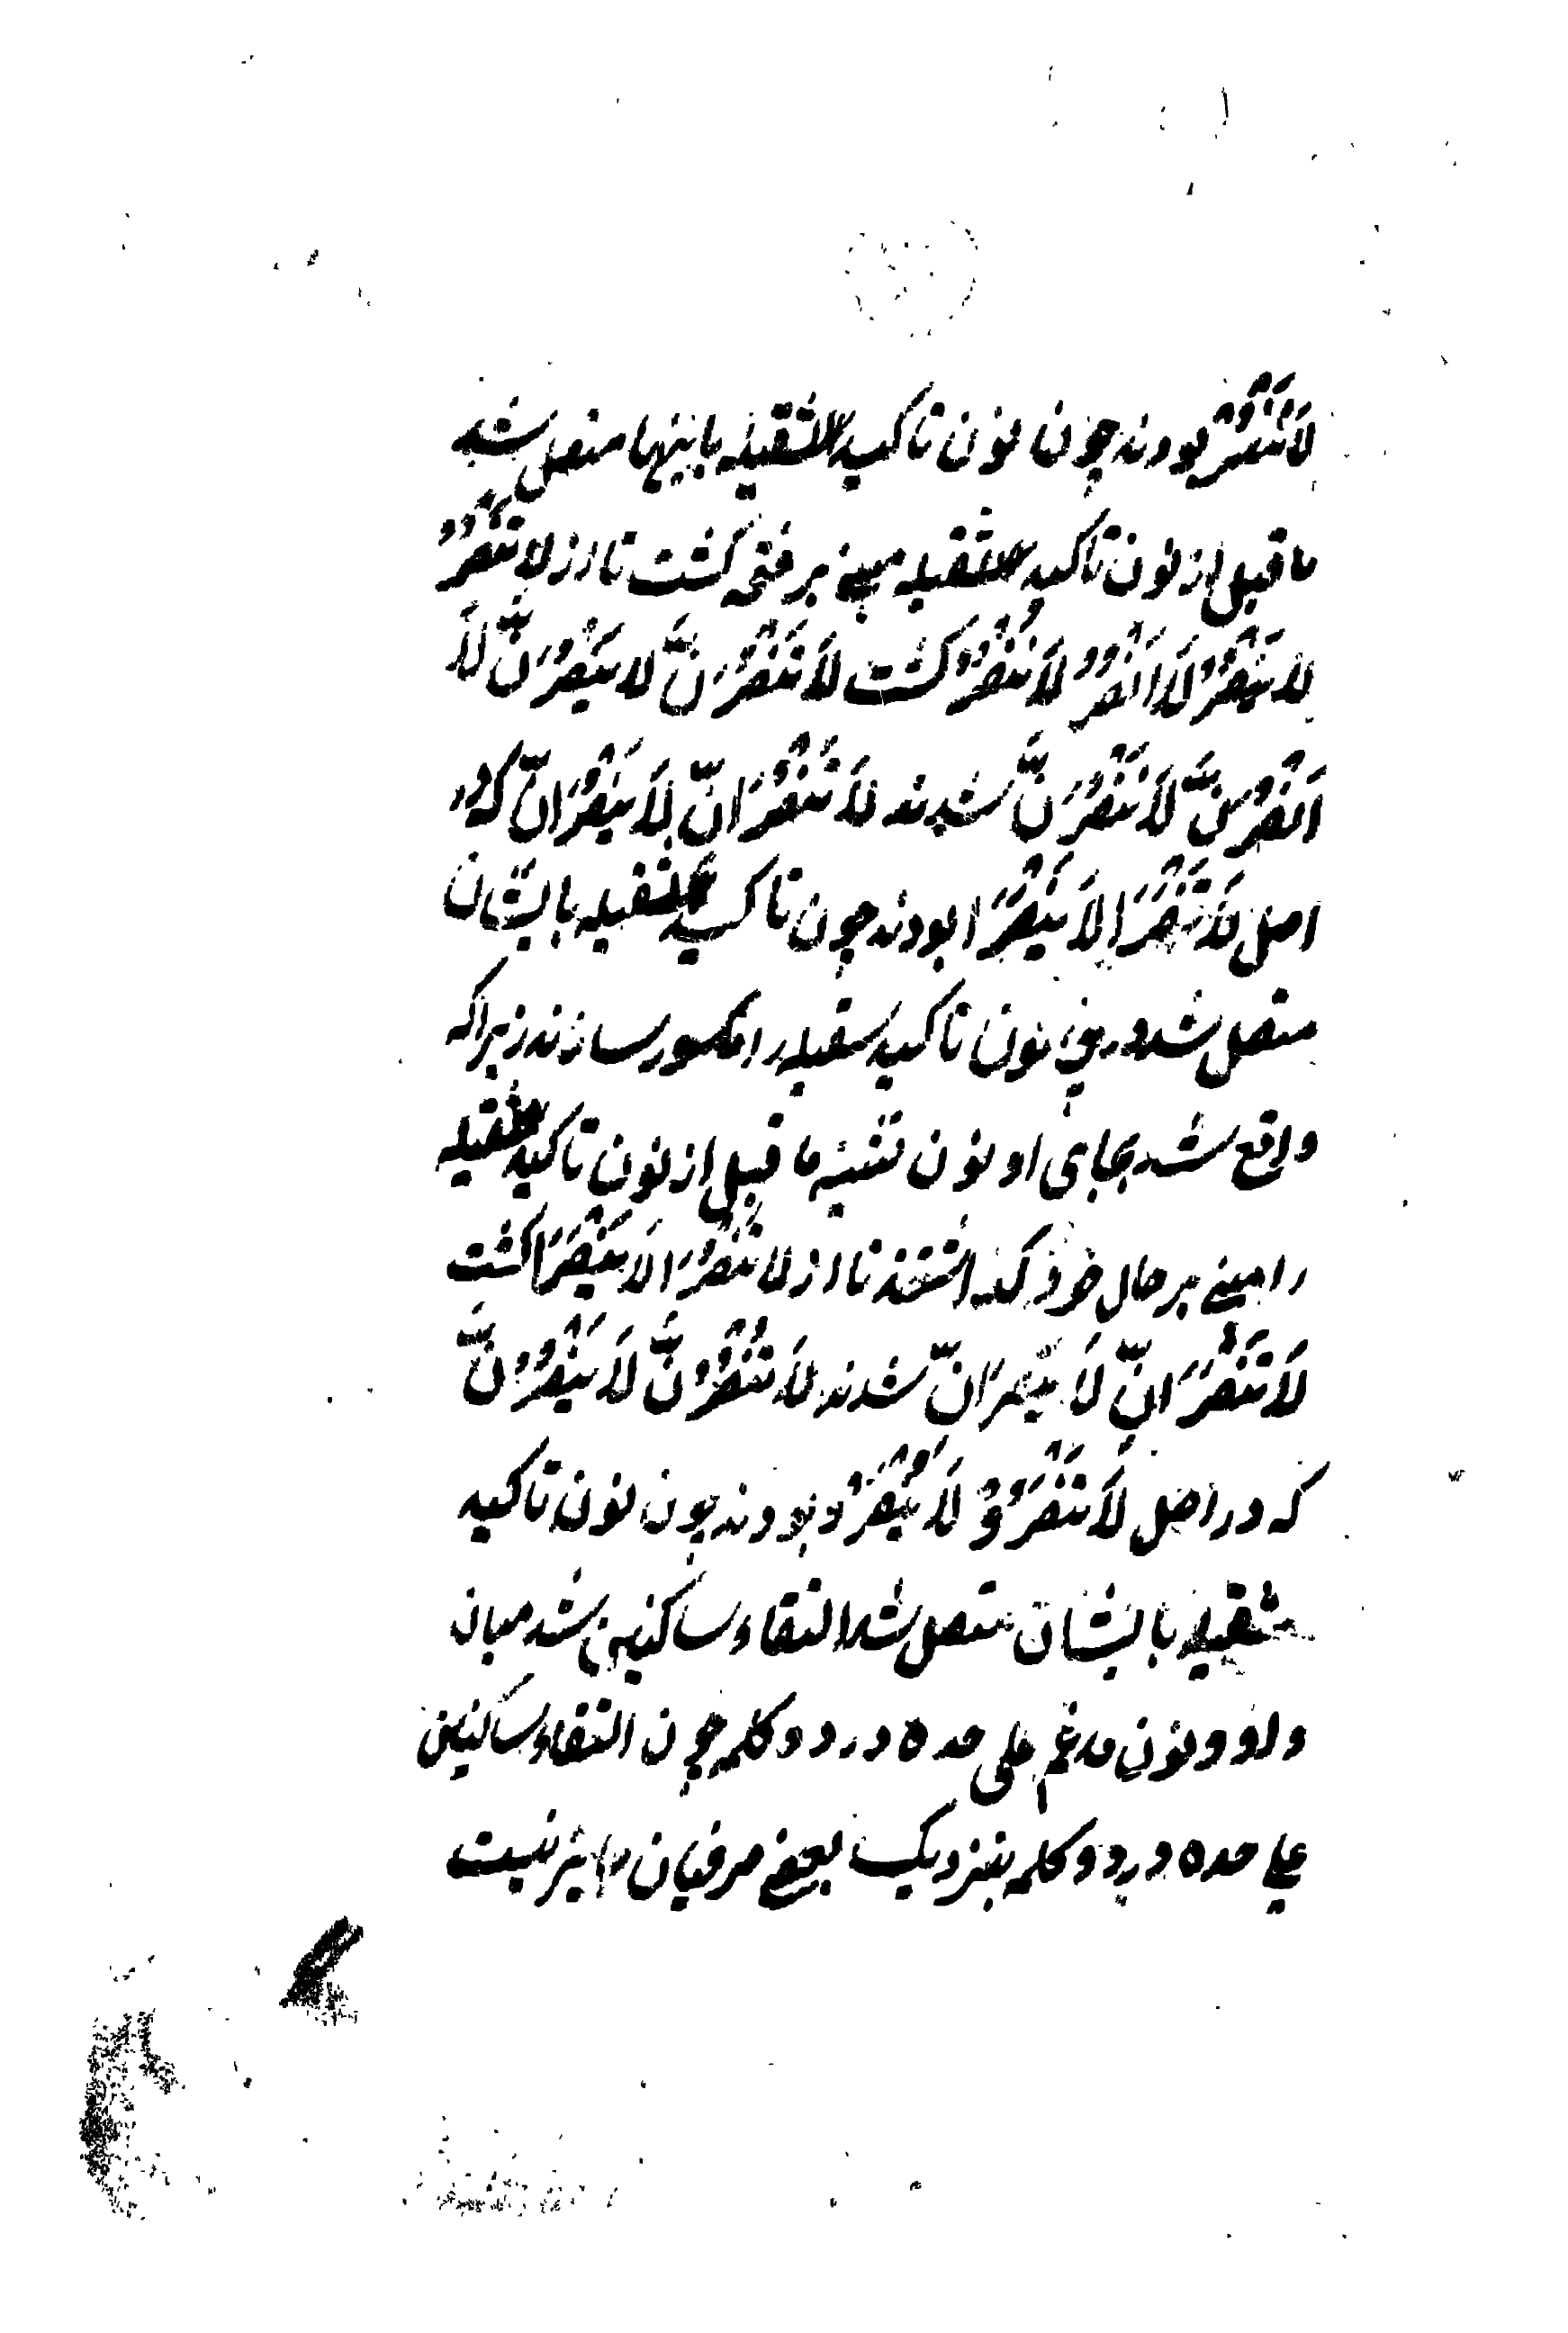 لَاَنَنْصُرُ بودند چون نون تاکید ثقیله باینها متصل شد
ماقبل از نون تاکید ثقیله مبنے بر فتحه کشت تا از لا تَنْصُرُ
لَا یَنْصُرُ لَا اَنْصُرُ لَا نَنْصُرُ کشت لَا تَنْصُرَنَّ لا یَنْصُرَنَّ لَا
اَنْصُرَنَّ لَا نَنْصُرَنَّ شدند لَا تَنْصُرَانِّ لَا یَنْصُرَانِّ که در
اصل لَا تَنْصُرَا لَا یَنْصُرَا بودند چون تاکید ثقیله بایشان
متصل شد درین نون تاکید ثقیله را مکسور سازند زیراکه
واقع شد بجای او نون تثنیه ماقبل از نون تاکید ثقیله
را مبنے بر حال خود کذاشتند تا از لا تَنْصُرَا لَا یَنْصُرَا کشت
لَا تَنْصُرَانِّ لَا یَنْصُرَانِّ شدند لَا تَنْصُرُنَّ لَا یَنْصُرُنَّ
که در اصل لَا تَنْصُرُوْ لَا یَنْصُرُوْ بودند چون نون تاکید
ثقیله بایشان متصل شد التقاء ساکنین شد میان
واو و نون مدغم علی حده در دو کلمه چون التقاء ساکنین
علے حده در دو کلمه بنزدیک بعضے صرفیان جایز نیست